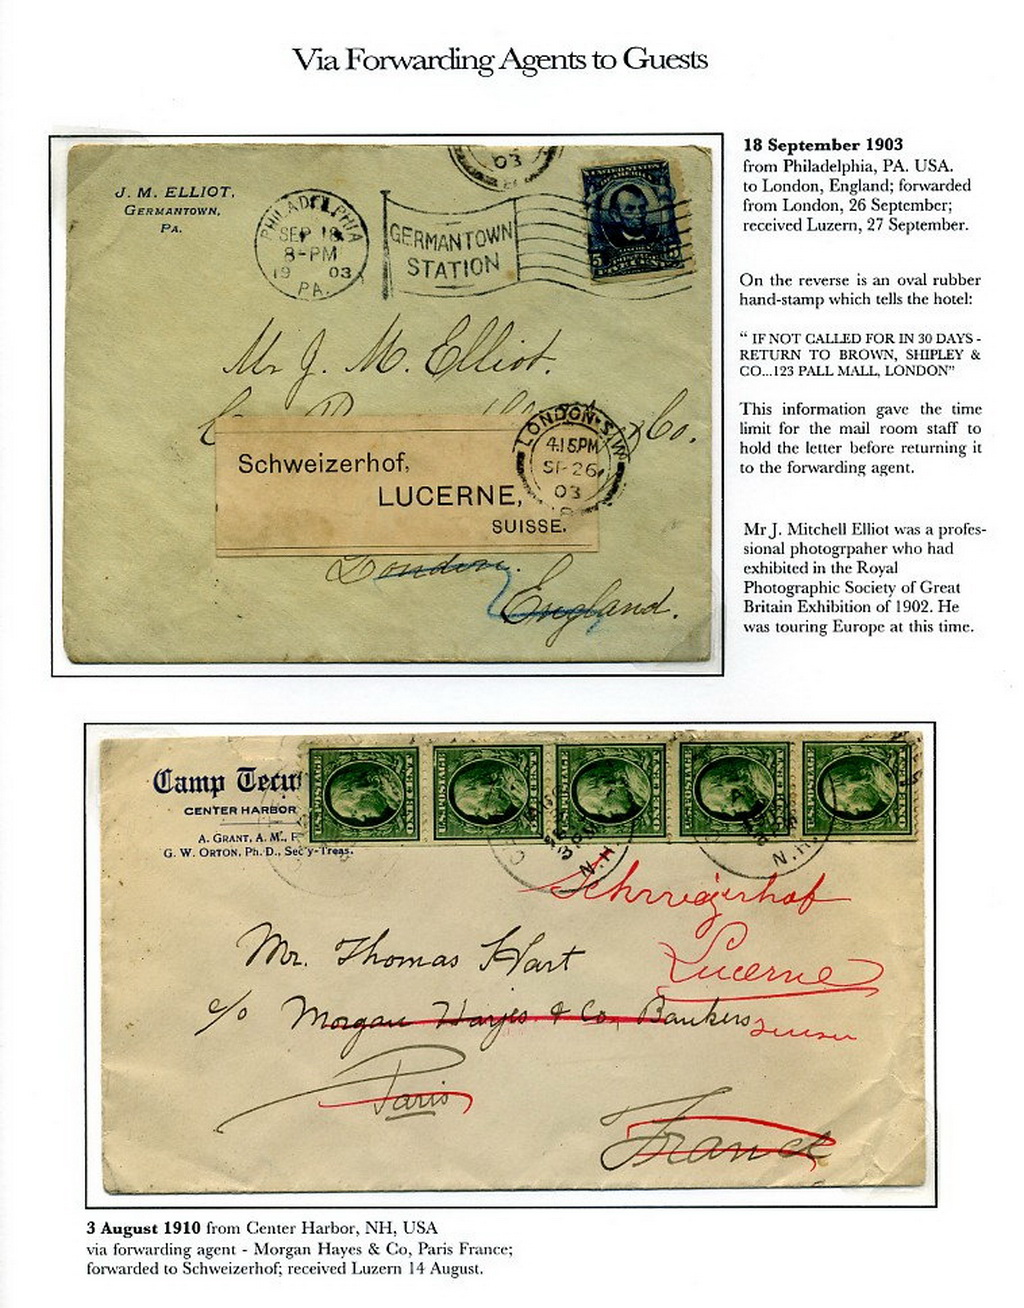 Via Forwarding Agents to Guests
18 September 1903
from Philadelphia, PA. USA.
to London, England; forwarded
from London, 26 September;
received Luzern, 27 September.
On the reverse is an oval rubber
hand-stamp which tells the hotel:
“ IF NOT CALLED FOR IN 30 DAYS -
RETURN TO BROWN, SHIPLEY &
CO...123 PALL MALL, LONDON”
This information gave the time
limit for the mail room staff to
hold the letter before returning it
to the forwarding agent.
Mr J. Mitchell Elliot was a profes-
sional photogrpaher who had
exhibited in the Royal
Photographic Society of Great
Britain Exhibition of 1902. He
was touring Europe at this time.
J. M. ELLIOT,
GERMANTOWN,
PA.
PHILADELPHIA
SEP 18
8-PM
19 03
PA.
GERMANTOWN
STATION
03
5 5
Mr J. M. Elliot.
Co.
Schweizerhof,
LUCERNE,
SUISSE.
LONDON. S.W
4.15PM
SP 26
03
London.
England.
Camp Tecu
CENTER HARBOR
A. GRANT, A. M., P
G. W. ORTON, Ph. D., Sec'y-Treas.
U.S. POSTAGE ONE CENT
U.S. POSTAGE ONE CENT
U.S. POSTAGE ONE CENT
U.S. POSTAGE ONE CENT
U.S. POSTAGE ONE CENT
N.H.
N.H.
Schweizerhof
Mr. Thomas Hart
Lucerne
c/o Morgan Hayes & Co. Bankers
Paris
France
3 August 1910 from Center Harbor, NH, USA
via forwarding agent - Morgan Hayes & Co, Paris France;
forwarded to Schweizerhof; received Luzern 14 August.